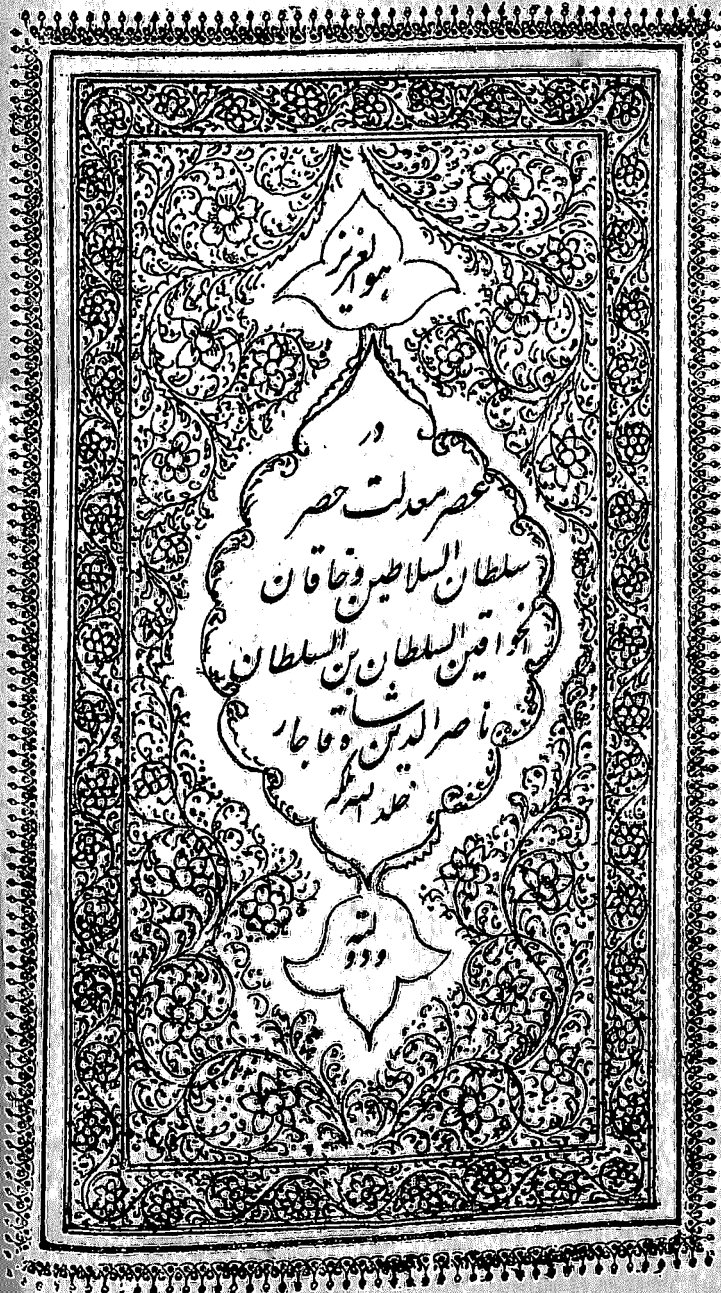 هو العزیز
در
عصر معدلت حصر
سلطان السلاطین و خاقان
الخواقین السلطان بن السلطان
ناصر الدین شاه قاجار
خلد الله ملکه
و دولته